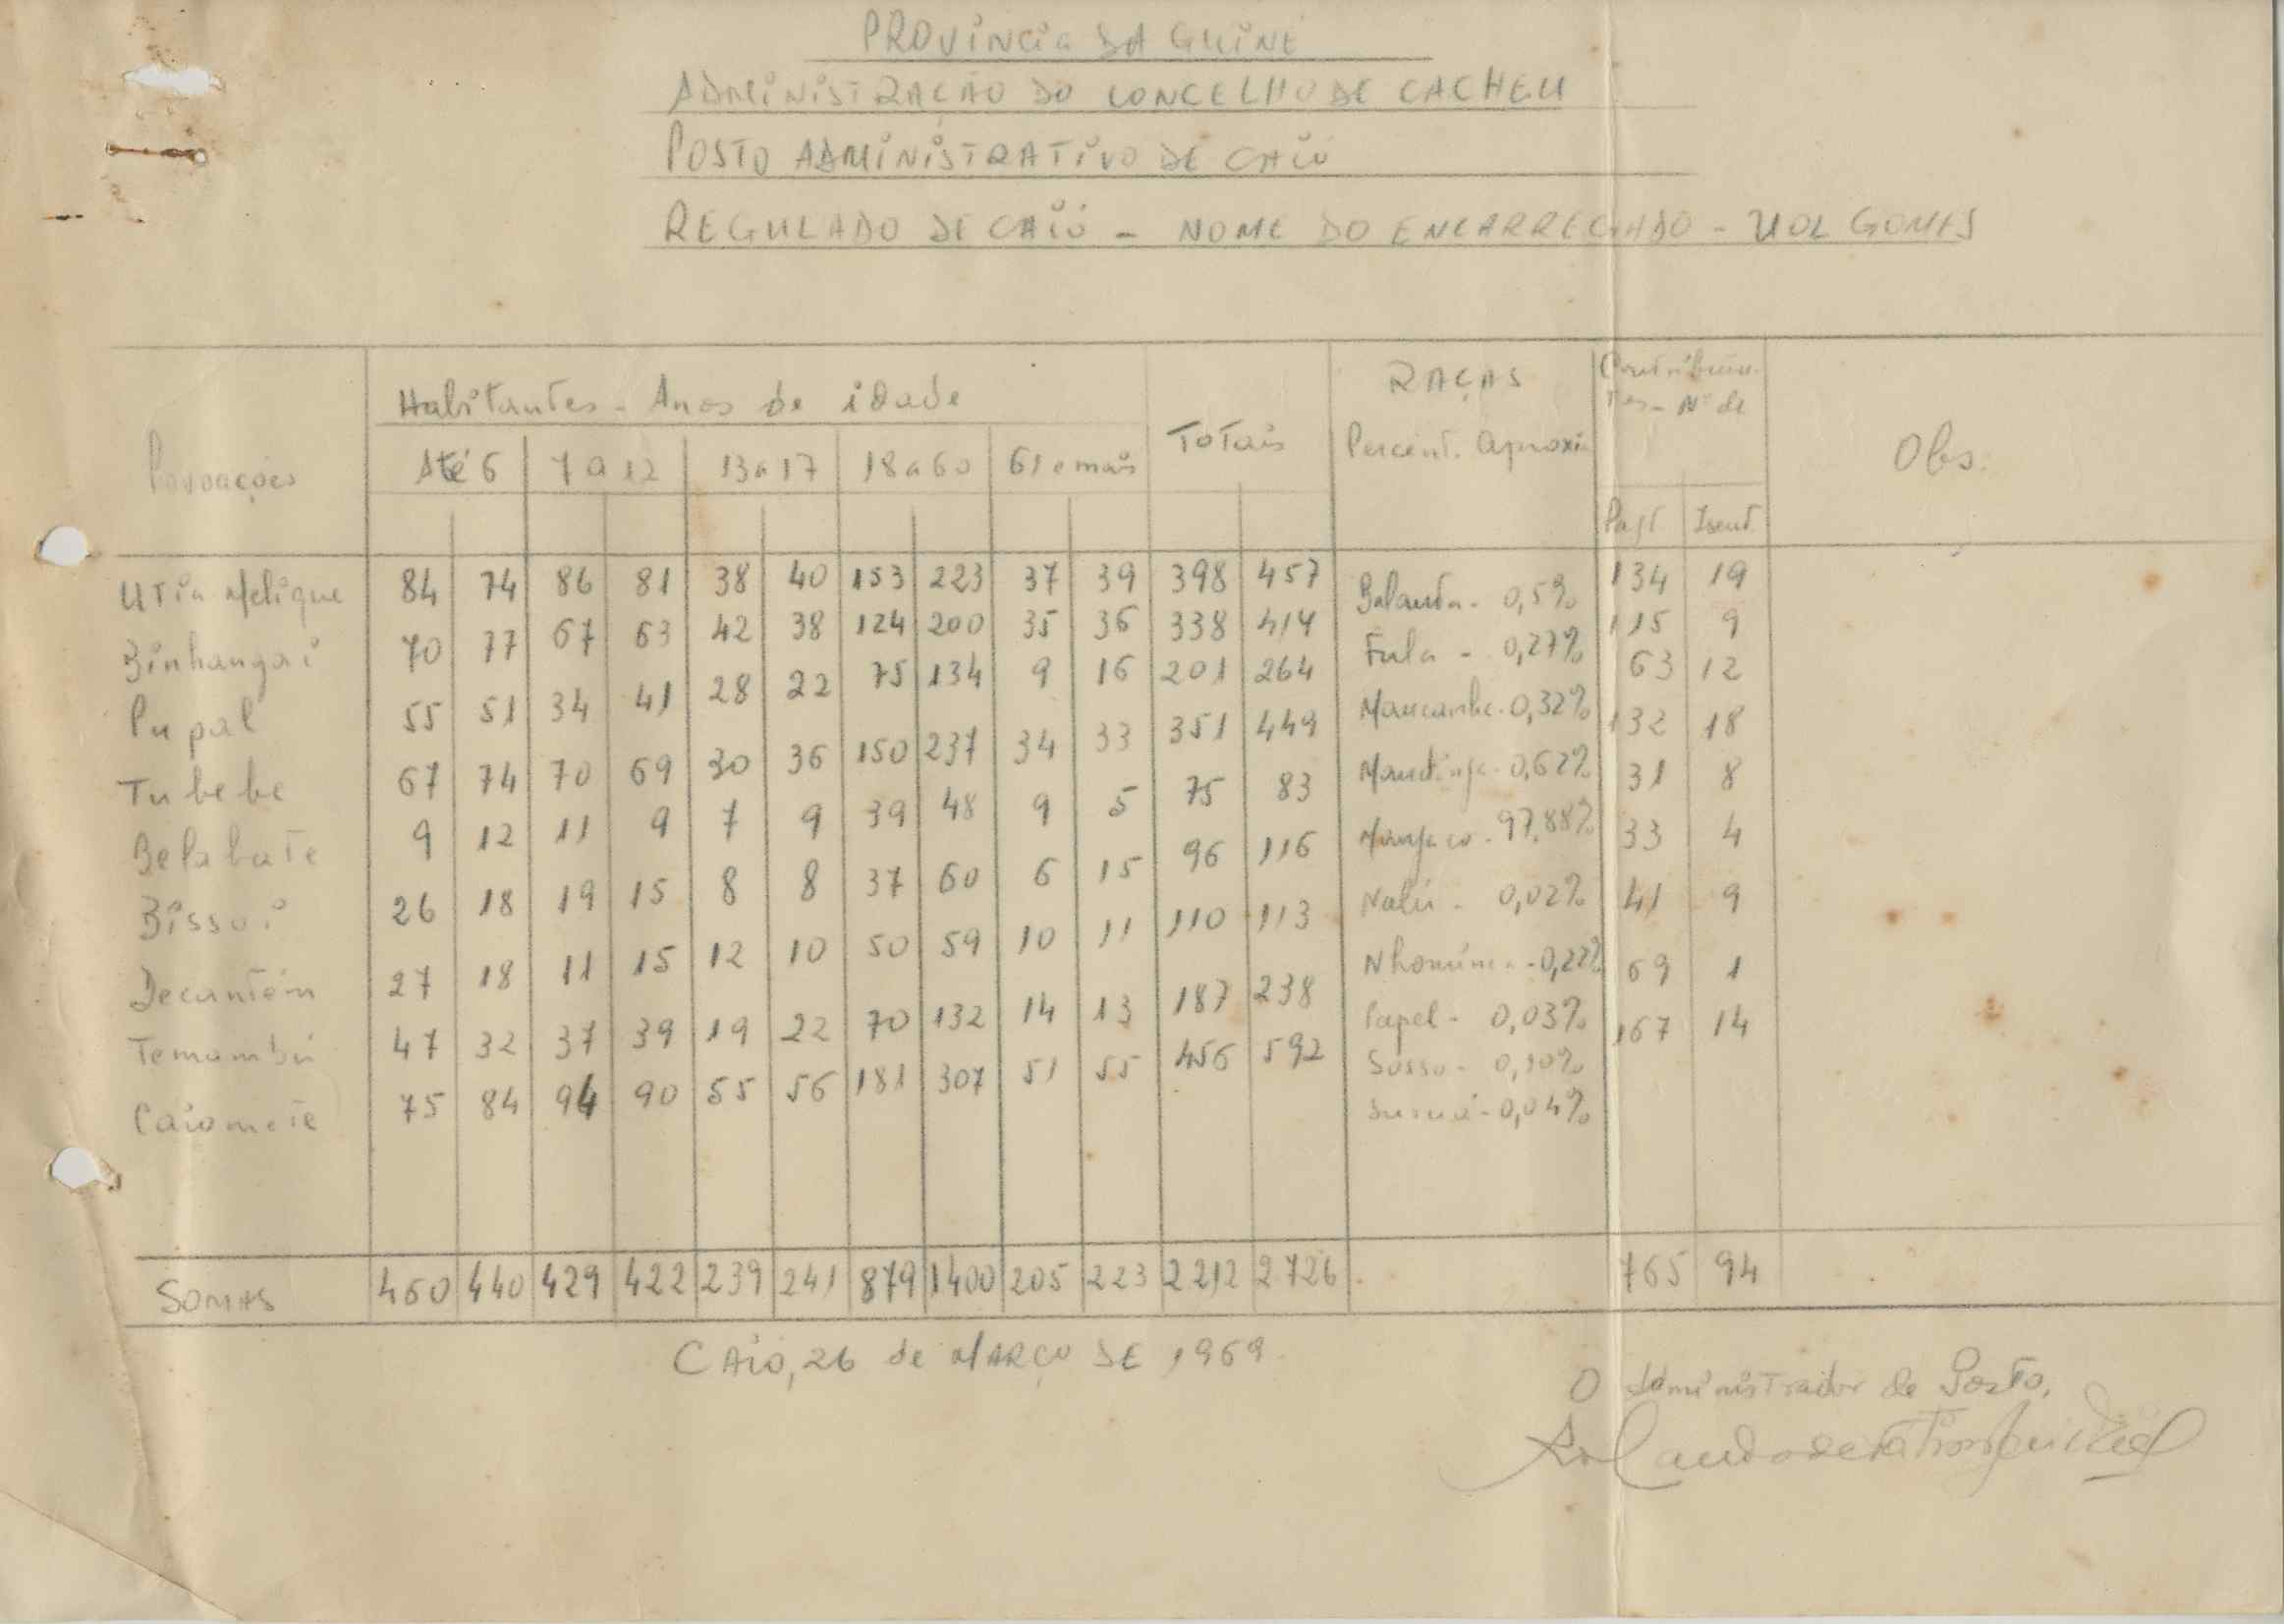 PROVINCIA DA GUINE
ADMINISTRAÇÃO DO CONCELHO DE CACHEU
POSTO ADMINISTRATIVO DE CAIÓ
REGULADO DE CAIÓ - NOME DO ENCARREGADO - UOL GOMES
Povoações Habitantes - Anos de idade Totais RAÇAS Percent. aproxi Contribuin-tes - Nº de Obs.
Até 6 7 a 12 13 a 17 18 a 60 61 e mais Pagt. Isent.
Utia Melique 84 74 86 81 38 40 153 223 37 39 398 457 Balanta - 0,5% 134 19
Binhangai 70 77 67 63 42 38 124 200 35 36 338 414 Fula - 0,27% 115 9
Pupal 55 51 34 41 28 22 75 134 9 16 201 264 Mancanhe - 0,32% 63 12
Tubebe 67 74 70 69 30 36 150 237 34 33 351 449 Mandinga - 0,62% 132 18
Belabate 9 12 11 9 7 9 39 48 9 5 75 83 Manjaco - 97,88% 31 8
Bissoi 26 18 19 15 8 8 37 60 6 15 96 116 Nalú - 0,02% 33 4
Decantém 27 18 11 15 12 10 50 59 10 11 110 113 Nhominca - 0,22% 41 9
Temambú 47 32 37 39 19 22 70 132 14 13 187 238 Papel - 0,03% 69 1
Caiomete 75 84 94 90 55 56 181 307 51 55 456 592 Sosso - 0,10% 167 14
0,04%
SOMAS 460 440 429 422 239 241 879 1400 205 223 2212 2726 765 94
CAIÓ, 26 de MARÇO DE 1969
O Administrador de Posto,